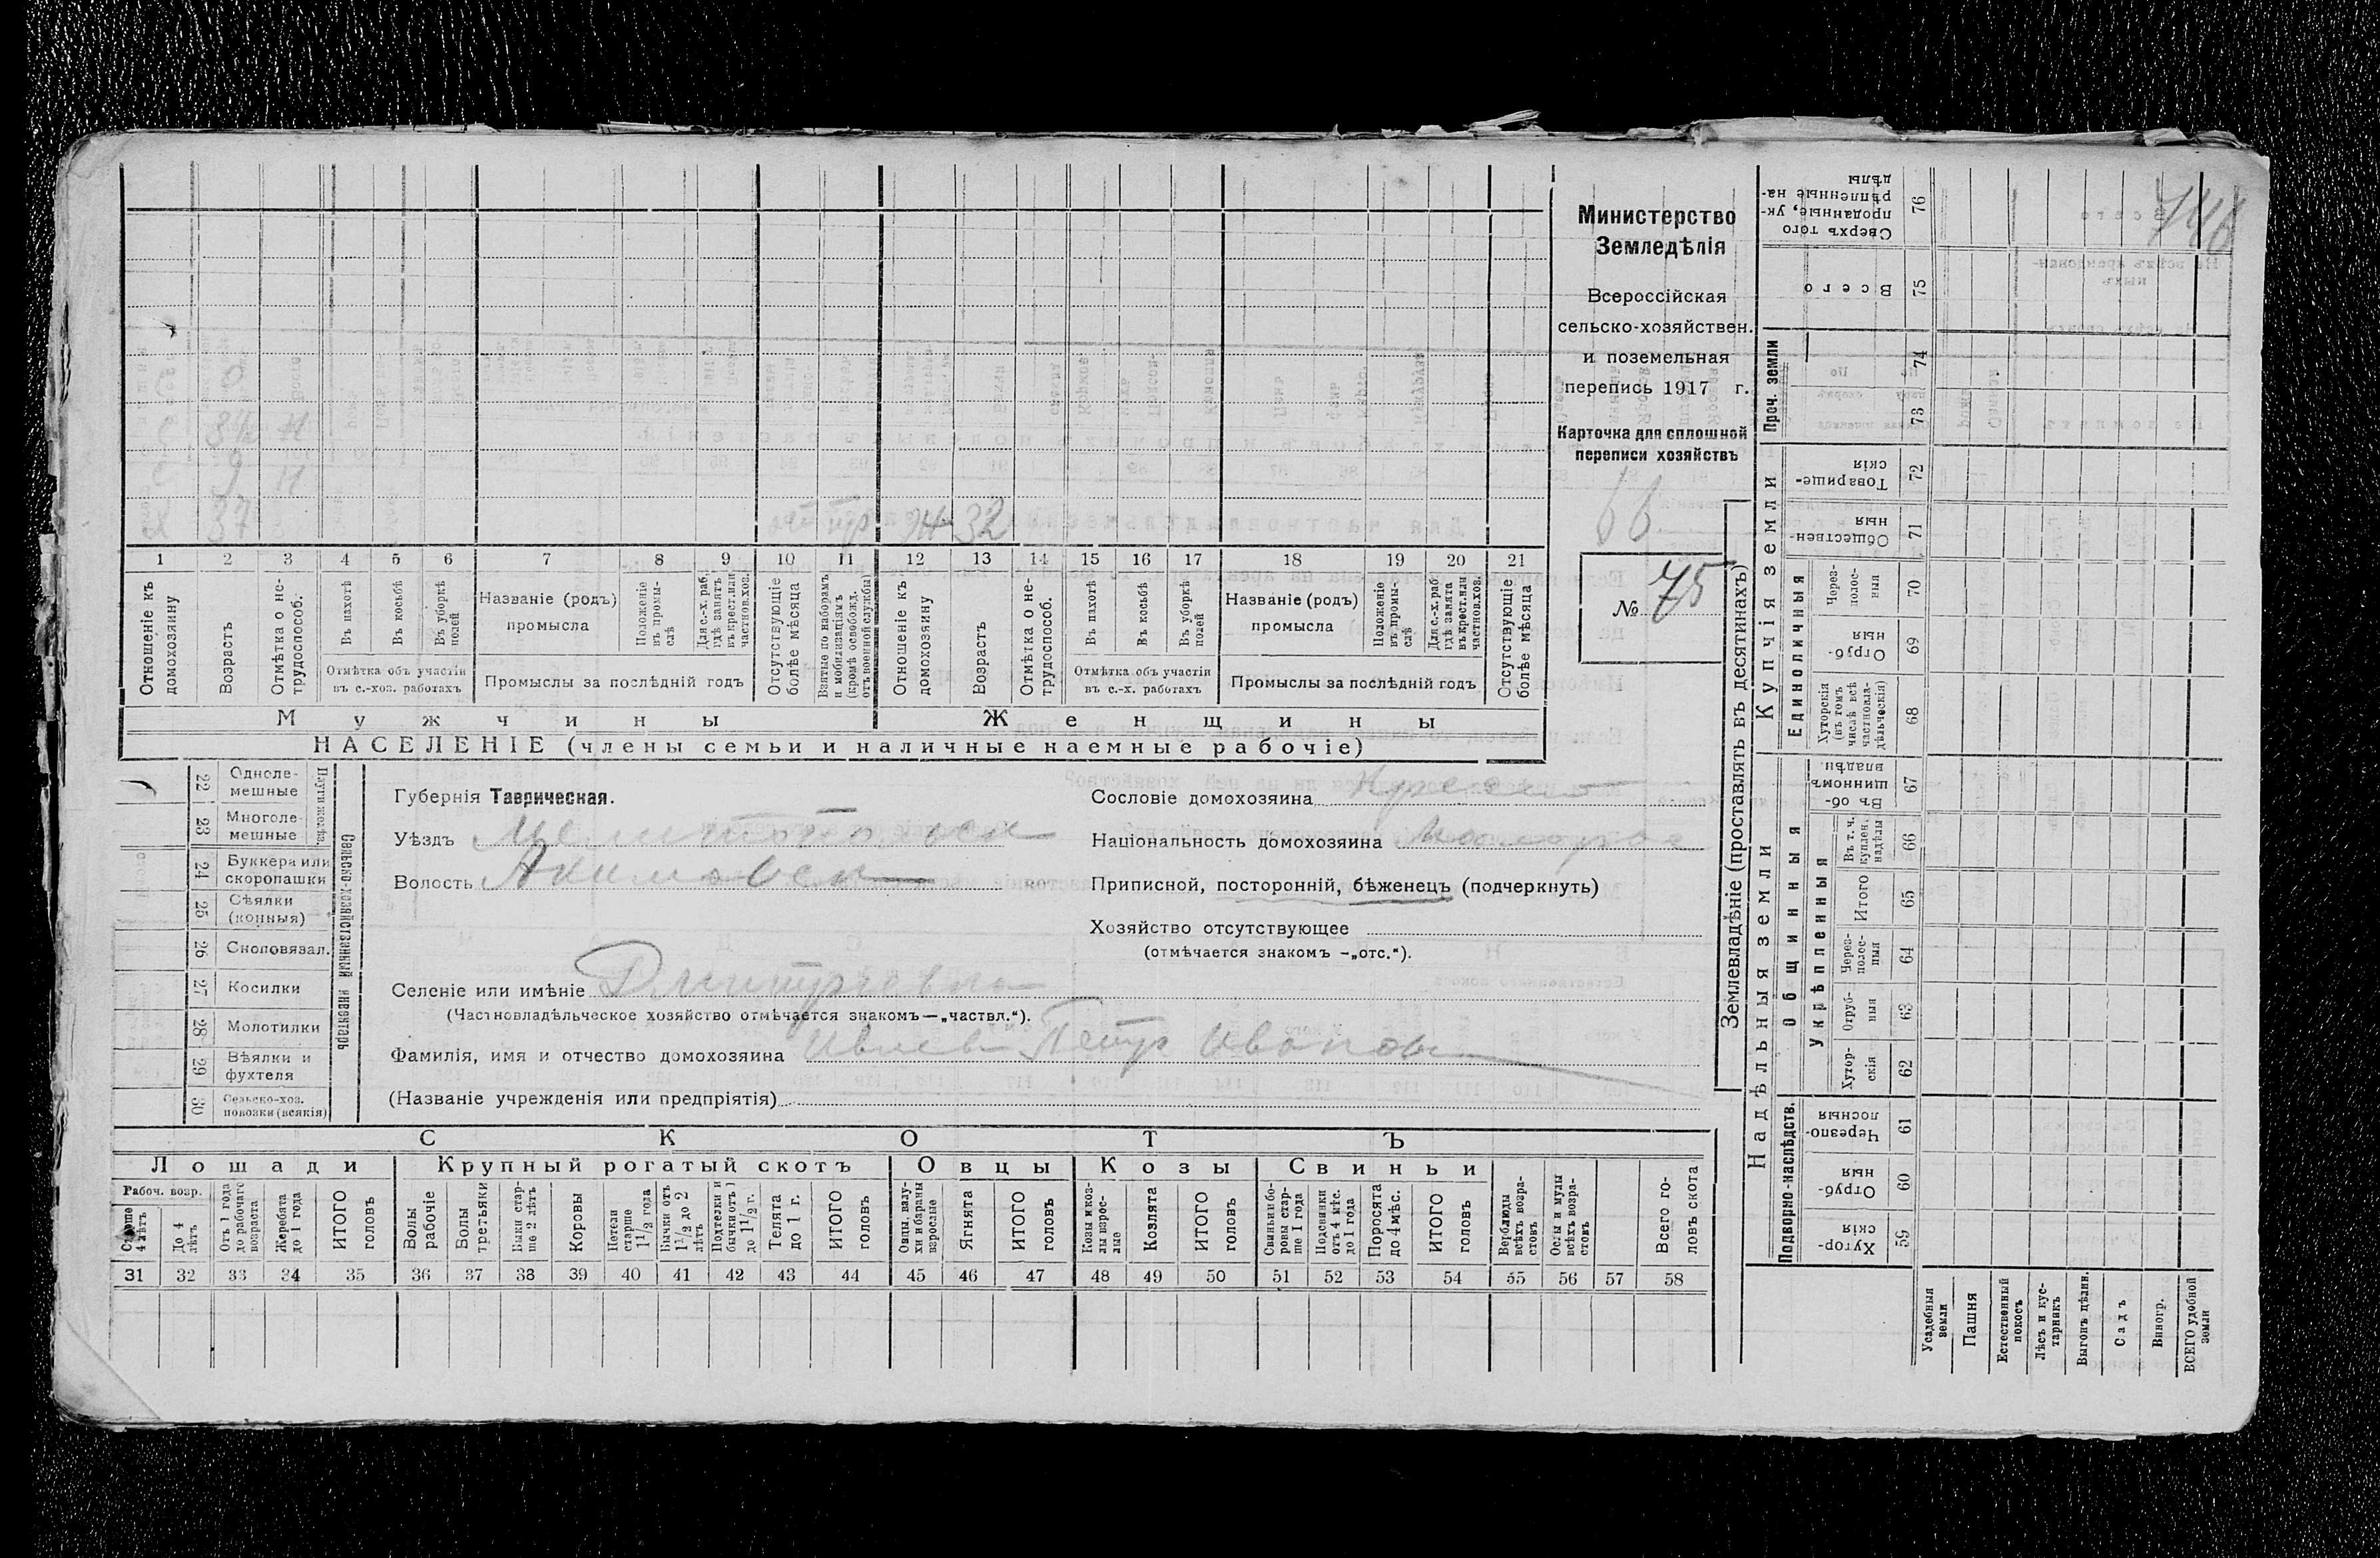 746
Министерство
Земледѣлія
Всероссійская
сельско-хозяйствен.
и поземельная
перепись 1917 г.
Карточка для сплошной
переписи хозяйствъ
66
№ 75
С 3½ Н
С 9 Н
Х 37
Ж 32
1 2 3 4 5 6 7 8 9 10 11 12 13 14 15 16 17 18 19 20 21
Отношеніе къ домохозяину
Возрастъ
Отмѣтка о не-трудоспособ.
Въ пахотѣ
Въ косьбѣ
Въ уборкѣ полей
Отмѣтка объ участіи
въ с.-хоз. работахъ
Названіе (родъ)
промысла
Положеніе въ промы-слѣ
Для с.-х. раб. гдѣ занятъ въ крест. или частнов. хоз.
Промыслы за послѣдній годъ
Отсутствующіе болѣе мѣсяца
Взятые по наборамъ и мобилизаціямъ (кромѣ освобожд. отъ военной службы)
Отношеніе къ домохозяину
Возрастъ
Отмѣтка о не-трудоспособ.
Въ пахотѣ
Въ косьбѣ
Въ уборкѣ полей
Отмѣтка объ участіи
въ с.-х. работахъ
Названіе (родъ)
промысла
Положеніе въ промы-слѣ
Для с.-х. раб. гдѣ занята въ крест. или частнов. хоз.
Промыслы за послѣдній годъ
Отсутствующіе болѣе мѣсяца
Мужчины Женщины
НАСЕЛЕНІЕ (члены семьи и наличные наемные рабочіе)
22 Одноле-мешные
23 Многоле-мешные
24 Буккера или скоропашки
25 Сѣялки (конныя)
26 Сноповязал.
27 Косилки
28 Молотилки
29 Вѣялки и фухтеля
30 Сельско-хоз. повозки (всякія)
Сельско-хозяйственный инвентарь
Губернія Таврическая.
Уѣздъ Мелитопольск
Волость Акимовск
Сословіе домохозяина
Національность домохозяина малорос
Приписной, посторонній, бѣженецъ (подчеркнуть)
Хозяйство отсутствующее
(отмѣчается знакомъ –„отс.“).
Селеніе или имѣніе Дмитріевка
(Частновладѣльческое хозяйство отмѣчается знакомъ—„частвл.“).
Фамилія, имя и отчество домохозяина Ивлев Петр Иванов
(Названіе учрежденія или предпріятія)
СКОТЪ
Лошади Крупный рогатый скотъ Овцы Козы Свиньи
Рабоч. возр.
Старше 4 лѣтъ
До 4 лѣтъ
Отъ 1 года до рабочаго возраста
Жеребята до 1 года
ИТОГО головъ
Волы рабочіе
Волы третьяки
Быки стар-ше 2 лѣтъ
Коровы
Нетели старше 1½ года
Бычки отъ 1½ до 2 лѣтъ
Подтелки и бычки отъ 1 до 1½ г.
Телята до 1 г.
ИТОГО головъ
Овцы, валу-хи и бараны взрослые
Ягнята
ИТОГО головъ
Козы и коз-лы взрос-лые
Козлята
ИТОГО головъ
Свиньи и бо-ровы стар-ше 1 года
Подсвинки отъ 4 мѣс. до 1 года
Поросята до 4 мѣс.
ИТОГО головъ
Верблюды всѣхъ возра-стовъ
Ослы и мулы всѣхъ возра-стовъ
Всего го-ловъ скота
31 32 33 34 35 36 37 38 39 40 41 42 43 44 45 46 47 48 49 50 51 52 53 54 55 56 57 58
Землевладѣніе (проставлять въ десятинахъ)
Надѣльныя земли Купчія земли Проч. земли
Подворно-наслѣдств.
Общинныя
Укрѣпленныя
Единоличныя
Хутор-скія 59
Отруб-ныя 60
Черезпо-лосныя 61
Хутор-скія 62
Отруб-ныя 63
Через-полос-ныя 64
Итого 65
Въ т. ч. куплен. надѣлы 66
Въ об-щинномъ владѣн. 67
Хуторскія (въ томъ числѣ всѣ частновла-дѣльческія) 68
Отруб-ныя 69
Через-полос-ныя 70
Обществен-ныя 71
Товарище-скія 72
73
74
Всего 75
Сверхъ того проданные, ук-рѣпленные на-дѣлы 76
Усадебныя земли
Пашня
Естественный покосъ
Лѣсъ и кус-тарникъ
Выгонъ цѣлин.
Садъ
Виногр.
ВСЕГО удобной земли